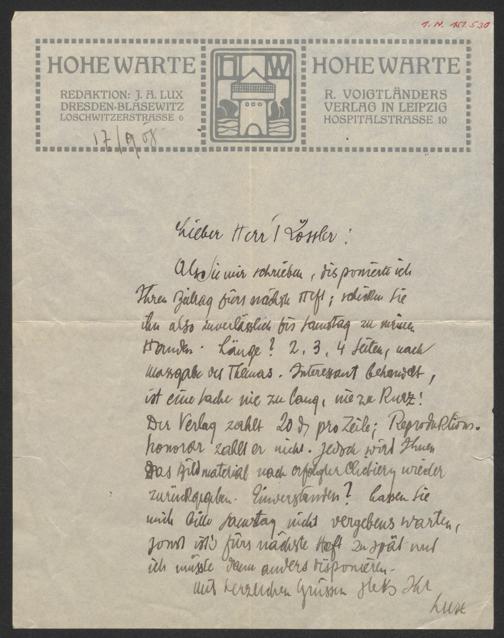 I.N. 151.530
HOHE WARTE
REDAKTION: J. A. LUX
DRESDEN-BLASEWITZ
LOSCHWITZERSTRASSE 6
H W
HOHE WARTE
R. VOIGTLÄNDERS
VERLAG IN LEIPZIG
HOSPITALSTRASSE 10
Lieber Herr Rössler!
Als Sie mir schrieben, disponierte ich
Ihren Beitrag fürs nächste Heft; schicken Sie
ihn also zuverlässlich bis Samstag zu meinen
Handen. Länge? 2, 3, 4 Seiten, nach
Massgabe des Themas. Interessant behandelt,
ist eine Sache nie zu lang, nie zu kurz!
Der Verlag zahlt 20 ₰ pro Zeile; Reproduktions-
honorar zahlt er nicht. Jedoch wird Ihnen
das Bildmaterial nach erfolgter Clichierg wieder
zurückgegeben. Einverstanden? Lassen Sie
mich bitte Samstag nicht vergebens warten,
sonst ist's fürs nächste Heft zu spät und
ich müsste dann anders disponieren.
Mit herzlichen Grüssen stets Ihr
Lux